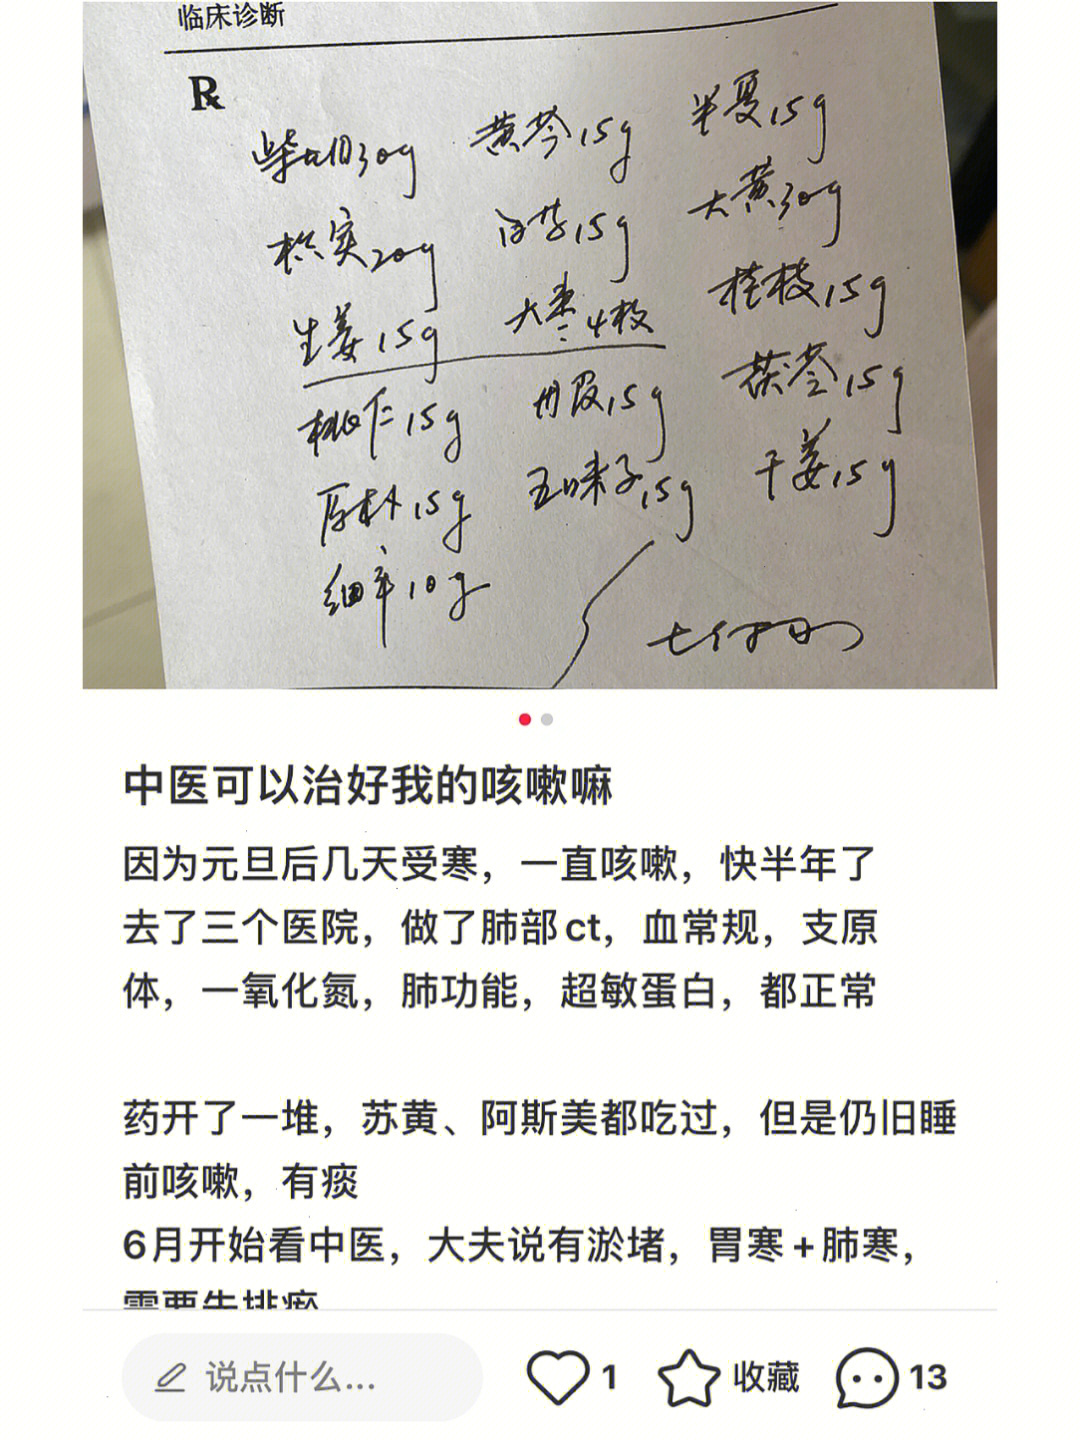 临床诊断
Rx
柴胡30g 黄芩15g 半夏15g
枳实20g 白芍15g 大黄30g
生姜15g 大枣4枚 桂枝15g
桃仁15g 丹皮15g 茯苓15g
厚朴15g 五味子15g 干姜15g
细辛10g
中医可以治好我的咳嗽嘛
因为元旦后几天受寒，一直咳嗽，快半年了
去了三个医院，做了肺部ct，血常规，支原
体，一氧化氮，肺功能，超敏蛋白，都正常
药开了一堆，苏黄、阿斯美都吃过，但是仍旧睡
前咳嗽，有痰
6月开始看中医，大夫说有淤堵，胃寒+肺寒，
需要先排瘀
说点什么...
1
收藏
13